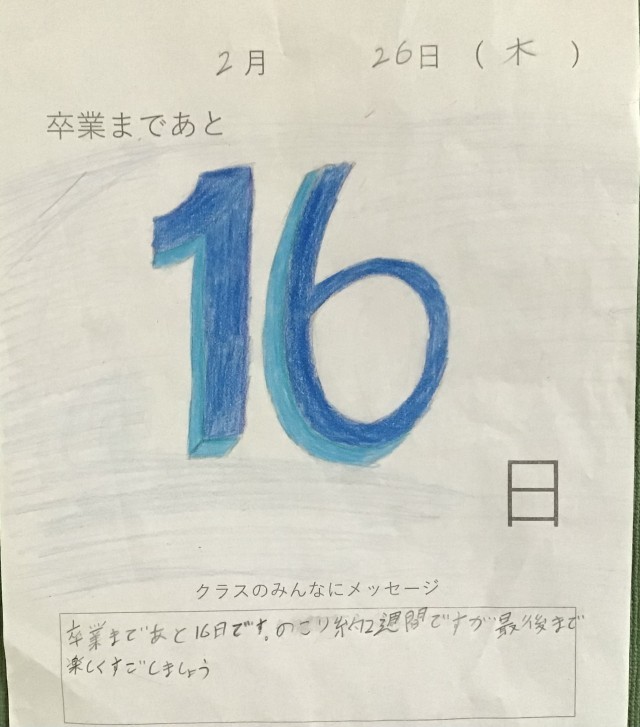 2月 26日 (木)
卒業まであと
16
日
クラスのみんなにメッセージ
卒業まであと16日です。のこり約2週間ですが最後まで
楽しくすごしましょう